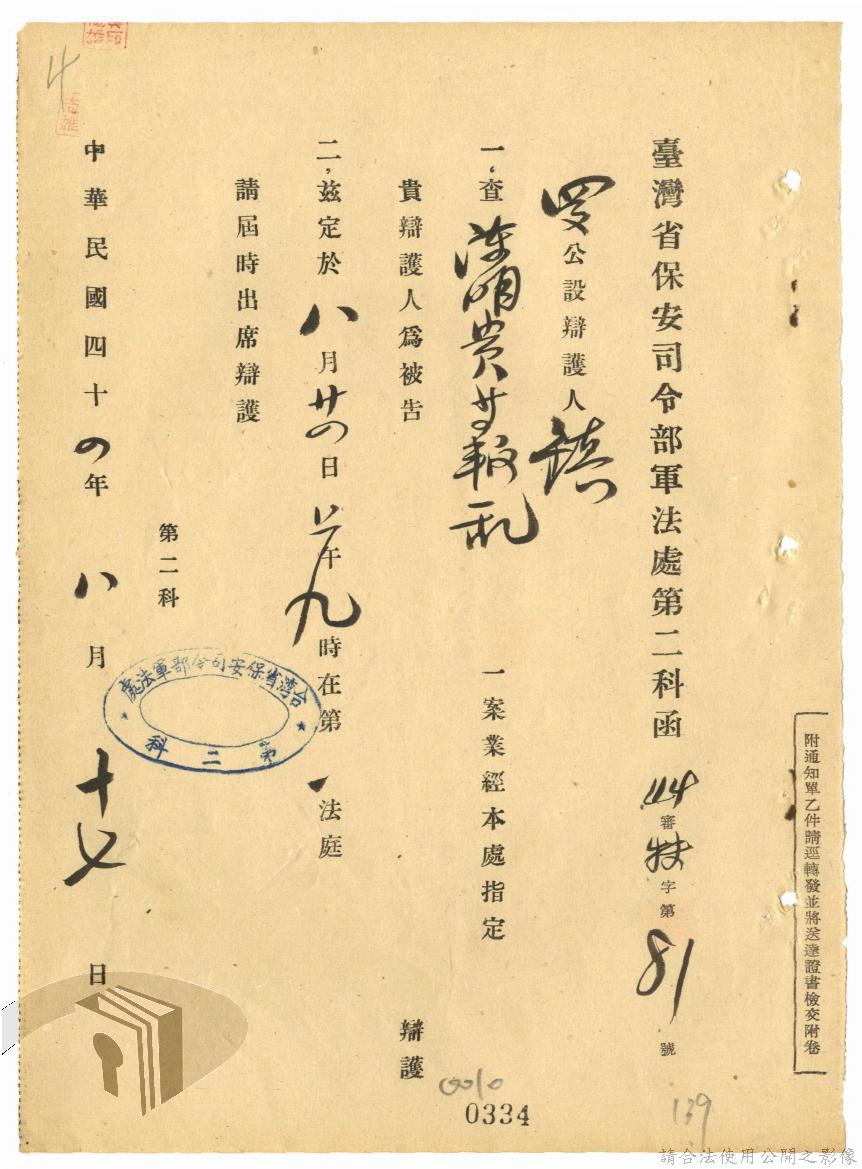 附通知單乙件請逕轉發並將送達證書檢交附卷
臺灣省保安司令部軍法處第二科函 44審特字第81號
公設辯護人
一、查 陳明貴等叛亂 一案業經本處指定
貴辯護人為被告 辯護
二、茲定於八月廿四日上午九時在第一法庭
請屆時出席辯護
第二科
台灣省保安司令部軍法處
第二科
中華民國四十四年八月十七日
0334
139
請合法使用公開之影像